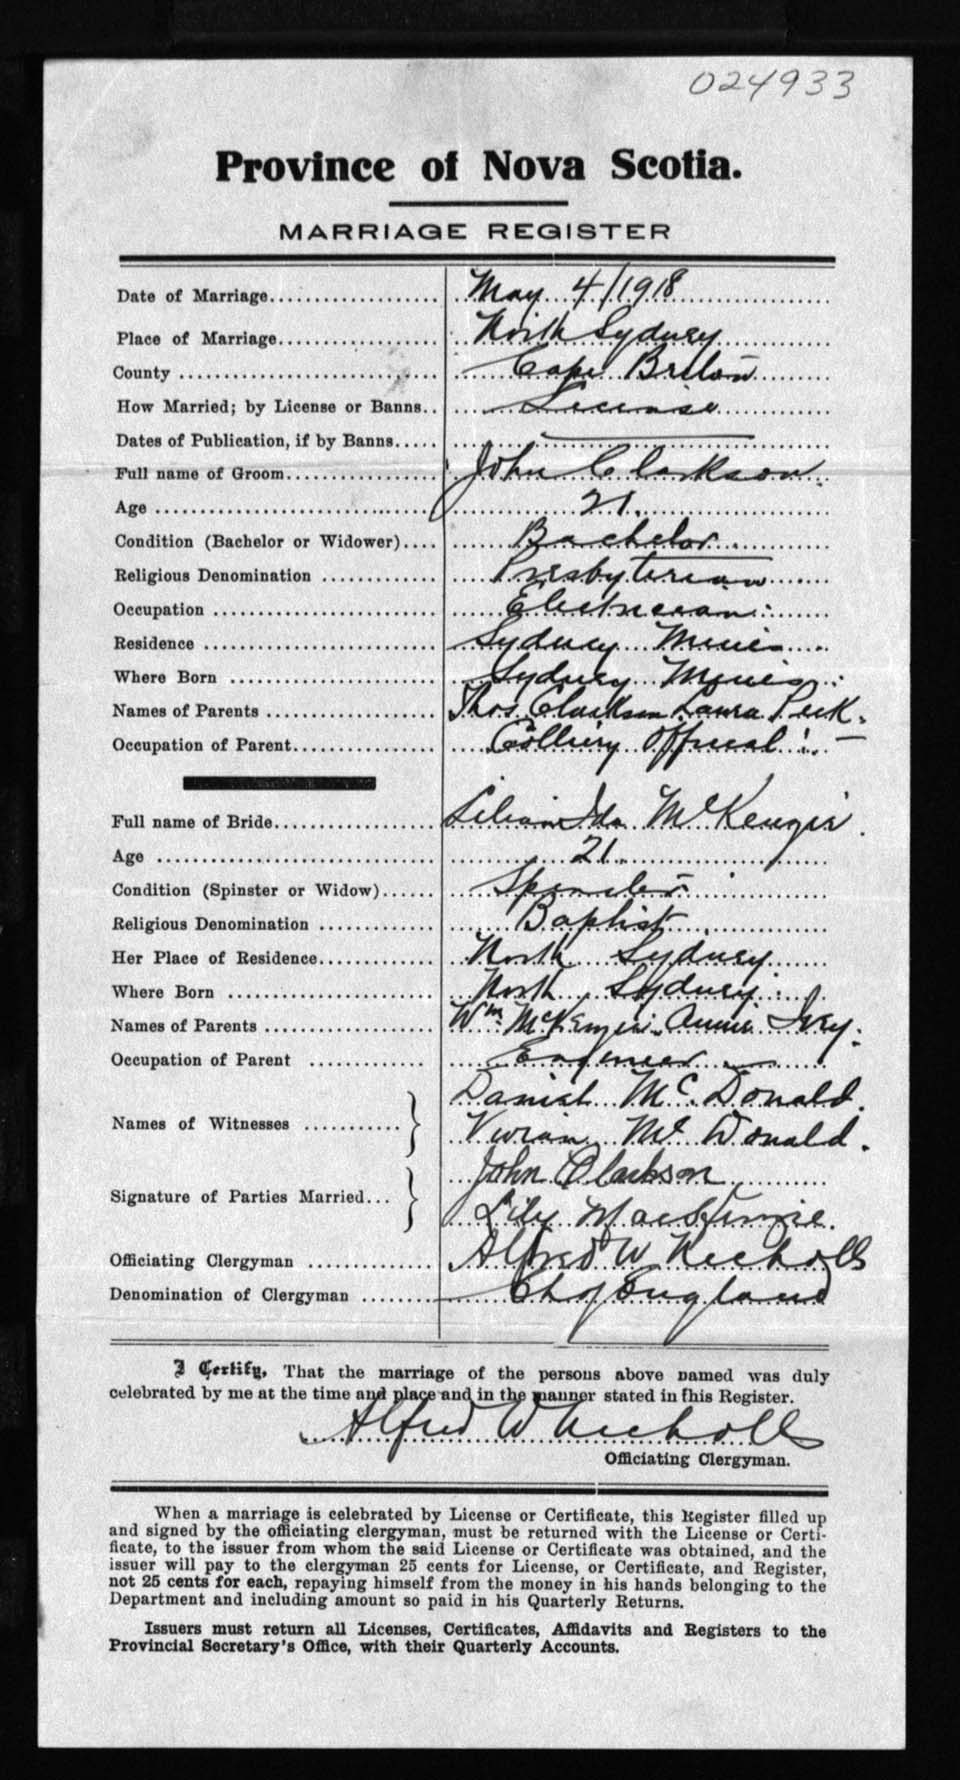 024933
Province of Nova Scotia.
MARRIAGE REGISTER
Date of Marriage................... May 4/1918
Place of Marriage.................. North Sydney
County ............................. Cape Breton
How Married; by License or Banns.. License
Dates of Publication, if by Banns.....
Full name of Groom................. John Clarkson
Age ................................ 21.
Condition (Bachelor or Widower).... Bachelor
Religious Denomination ............. Presbyterian
Occupation ......................... Electrician
Residence .......................... Sydney Mines
Where Born ......................... Sydney Mines
Names of Parents ................... Thos. Clarkson Laura Peck.
Occupation of Parent................ Colliery Official –
Full name of Bride.................. Lilian Ida McKenzie.
Age ................................ 21
Condition (Spinster or Widow)...... Spinster
Religious Denomination ............. Baptist
Her Place of Residence............. North Sydney
Where Born ......................... North Sydney
Names of Parents ................... Wm. McKenzie Annie Ivey.
Occupation of Parent ............... Engineer —
Names of Witnesses ........... } Daniel McDonald.
Vivian McDonald.
Signature of Parties Married... } John Clarkson
Lily MacKenzie.
Officiating Clergyman .............. Alfred W Nicholls
Denomination of Clergyman ........ Ch of England
I Certify, That the marriage of the persons above named was duly
celebrated by me at the time and place and in the manner stated in this Register.
Alfred W Nicholls
Officiating Clergyman.
When a marriage is celebrated by License or Certificate, this Register filled up
and signed by the officiating clergyman, must be returned with the License or Certi-
ficate, to the issuer from whom the said License or Certificate was obtained, and the
issuer will pay to the clergyman 25 cents for License, or Certificate, and Register,
not 25 cents for each, repaying himself from the money in his hands belonging to the
Department and including amount so paid in his Quarterly Returns.
Issuers must return all Licenses, Certificates, Affidavits and Registers to the
Provincial Secretary's Office, with their Quarterly Accounts.